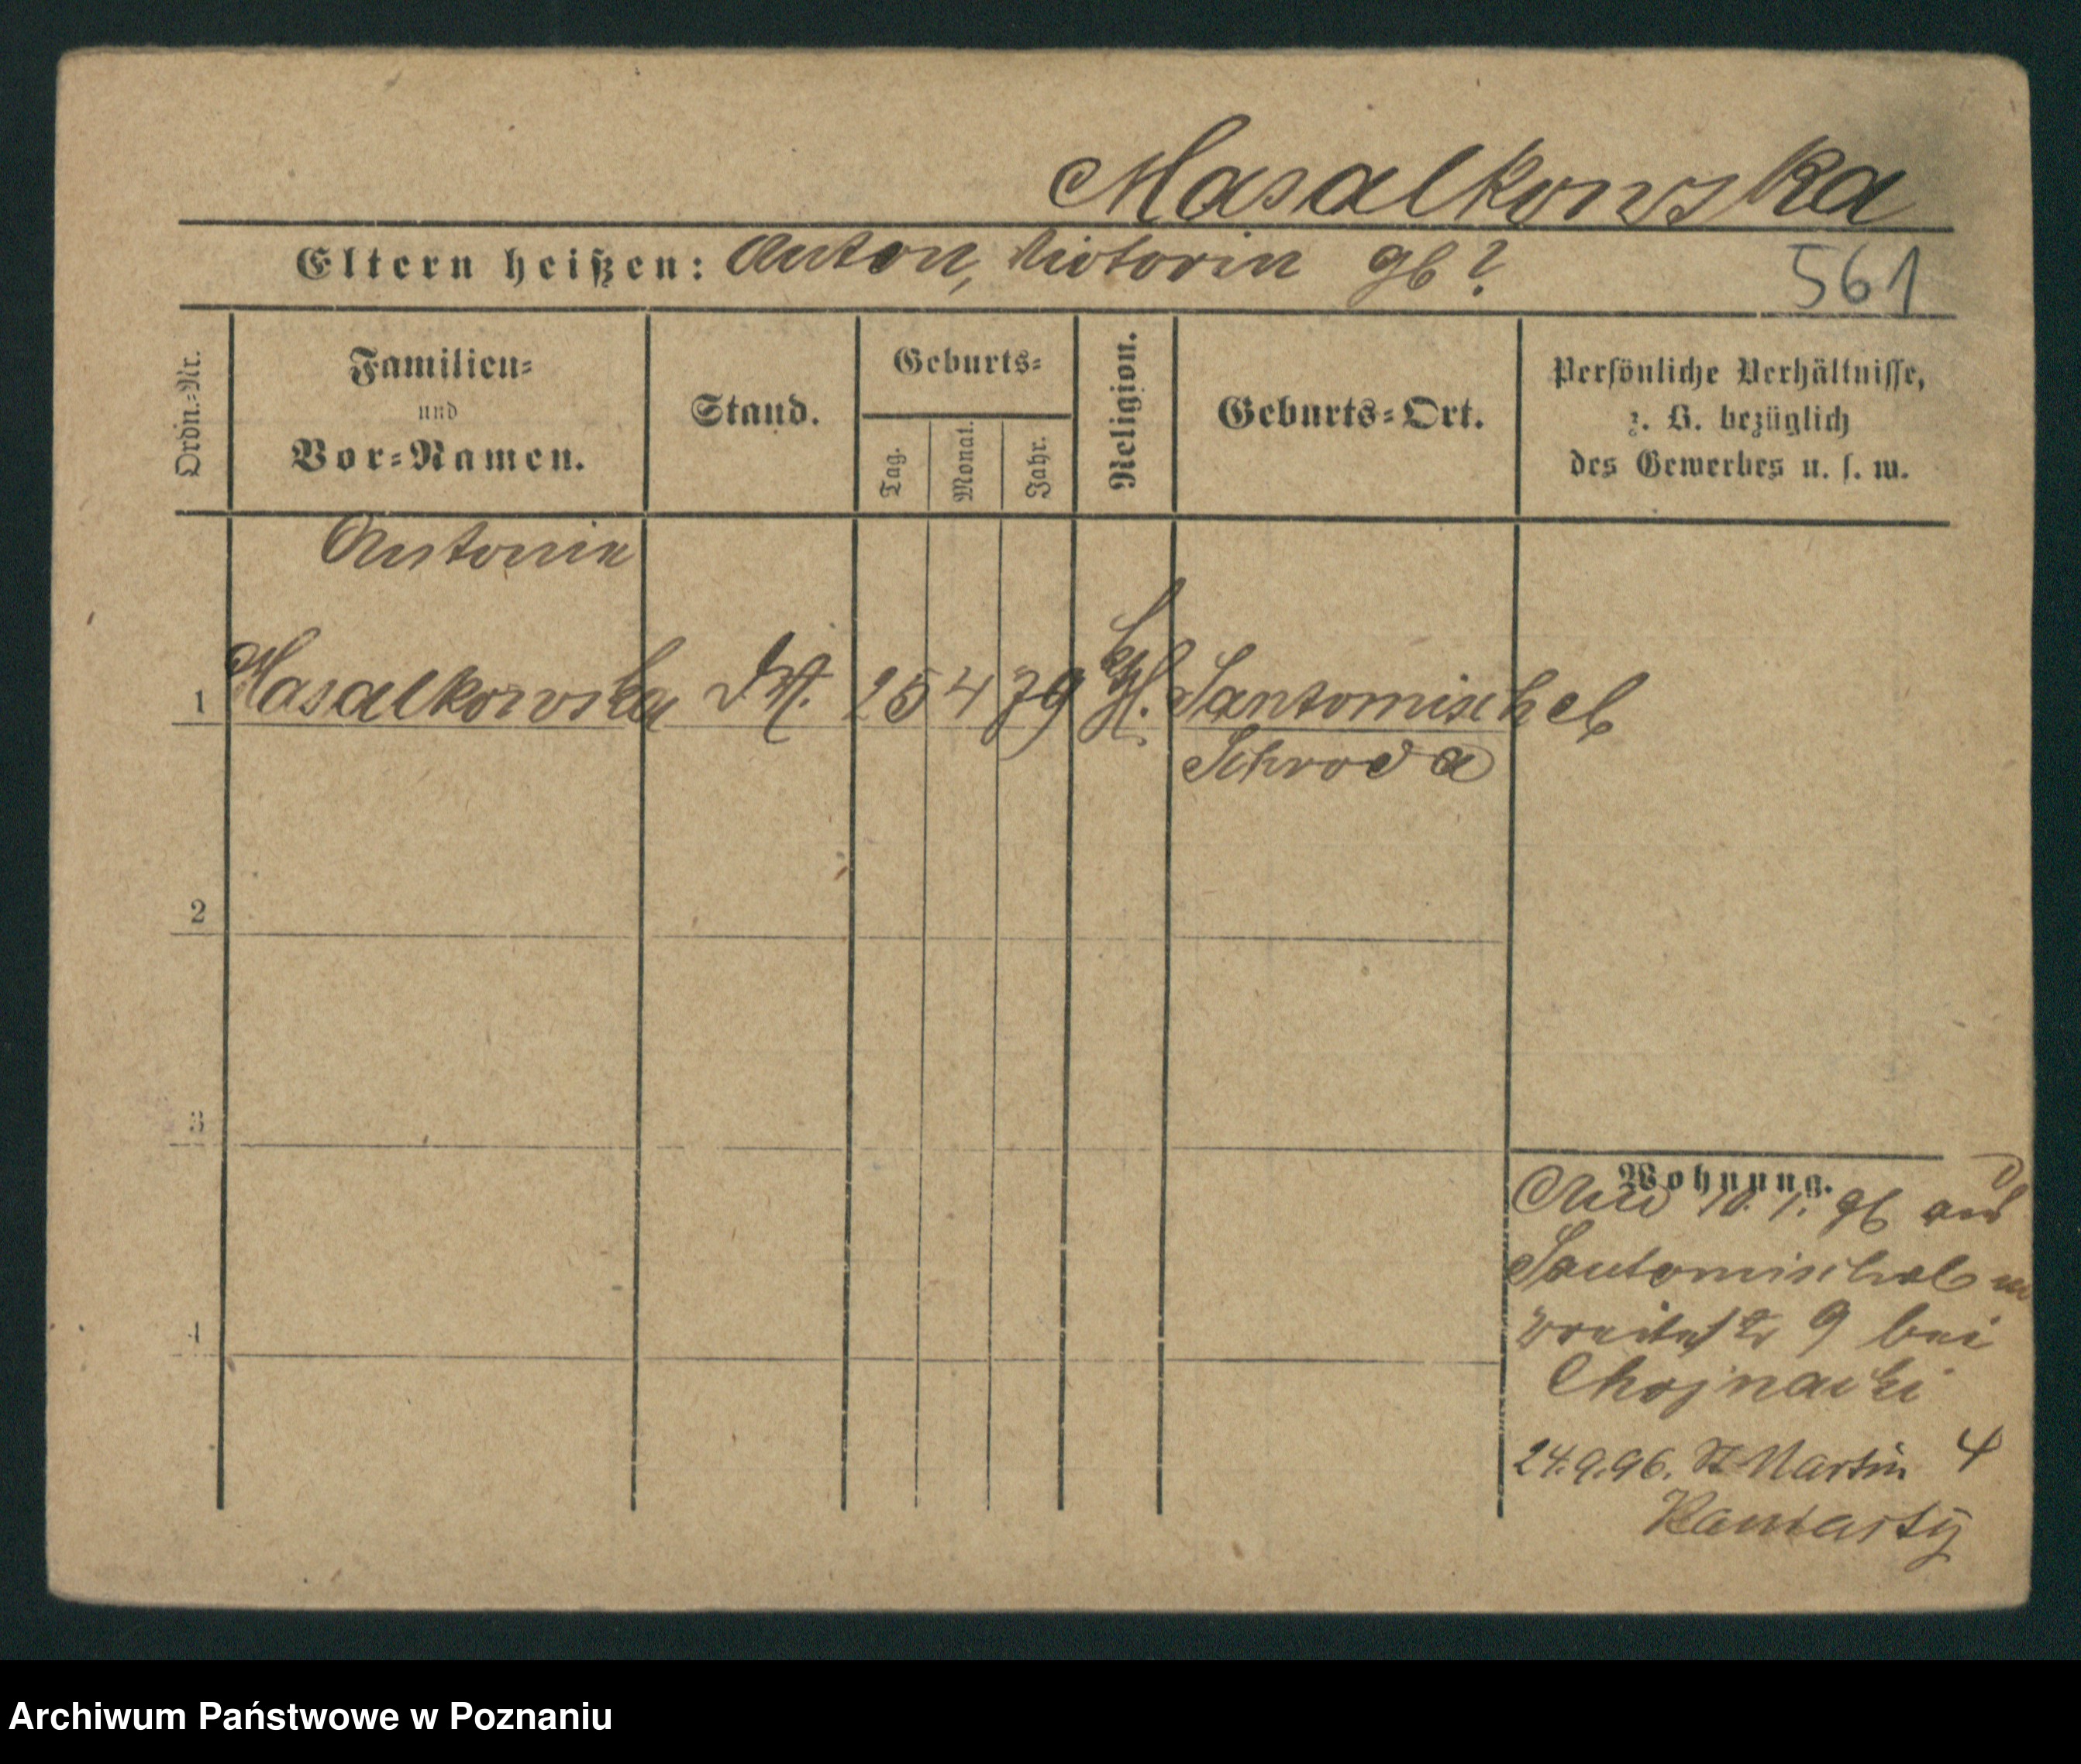 Masalkowska
Eltern heißen: Anton, Victorin gb?
561
Ordin.-Nr.
Familien-
und
Vor-Namen.
Stand.
Geburts-
Tag.
Monat.
Jahr.
Religion.
Geburts-Ort.
Persönliche Verhältnisse,
z. B. bezüglich
des Gewerbes u. s. w.
Antonin
1 Masalkowska 25 4 79 Santomischel
Schroda
2
3
4
Wohnung.
10. 1. 96 aus
Santomischel
9 bei
Chojnacki
24.9.96. St Martin 4
Archiwum Państwowe w Poznaniu